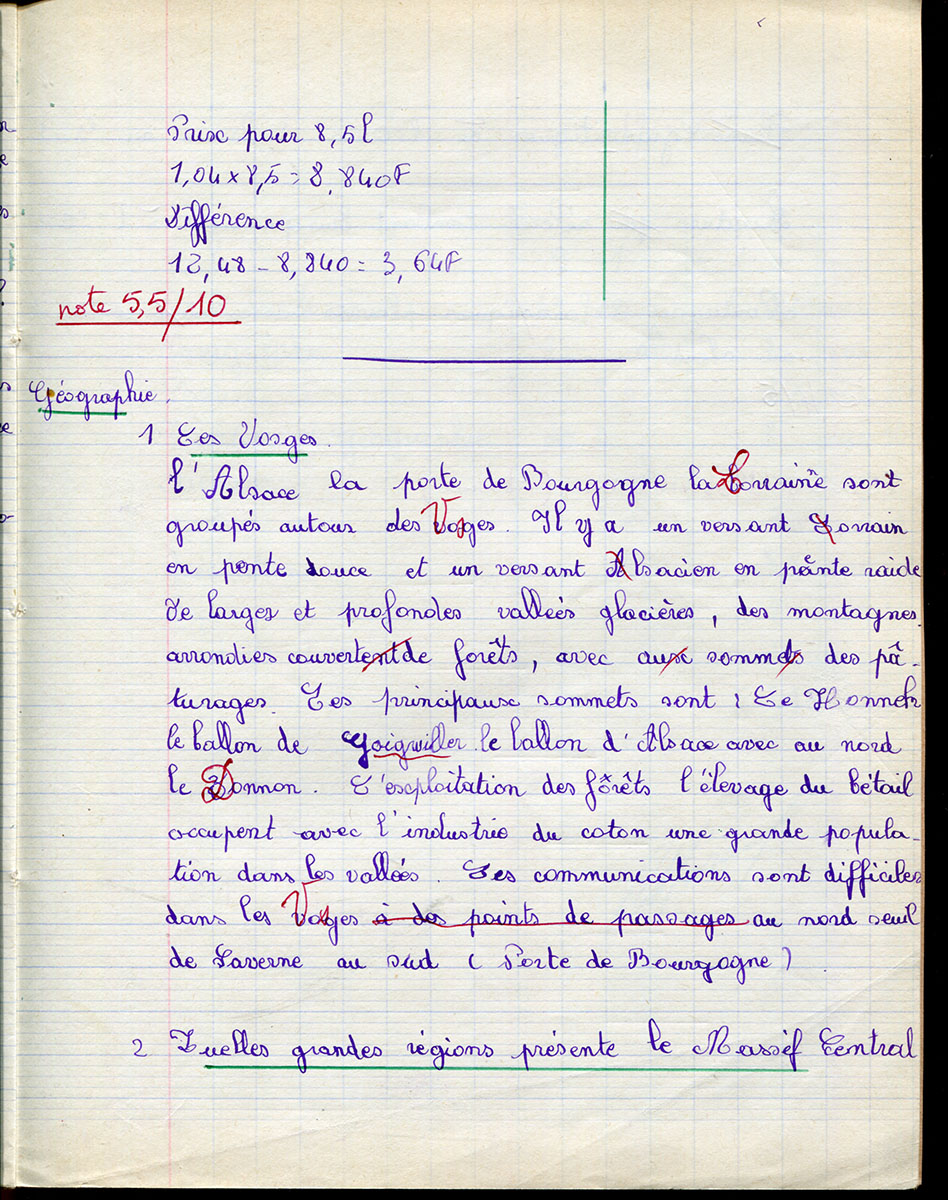 Prix pour 8,5l
1,04 x 8,5 = 8,840F
Différence
12,48 - 8,840 = 3,64F
note 5,5/10
Géographie.
1 Les Vosges.
l'Alsace la porte de Bourgogne la Lorraine sont
groupés autour des Vosges. Il y a un versant Lorrain
en pente douce et un versant Alsacien en pente raide
De larges et profondes vallées glacières, des montagnes
arrondies couvertent de forêts, avec aux sommets des pâ-
turages. Les principaux sommets sont : Le Honneck
le ballon de le ballon d'Alsace avec au nord
le Donnon. L'exploitation des forêts l'élevage du bétail
occupent avec l'industrie du coton une grande popula-
tion dans les vallées. Les communications sont difficiles
dans les Vosges à des points de passages au nord seuil
de Saverne au sud (Porte de Bourgogne)
2 Quelles grandes régions présente le Massif Central